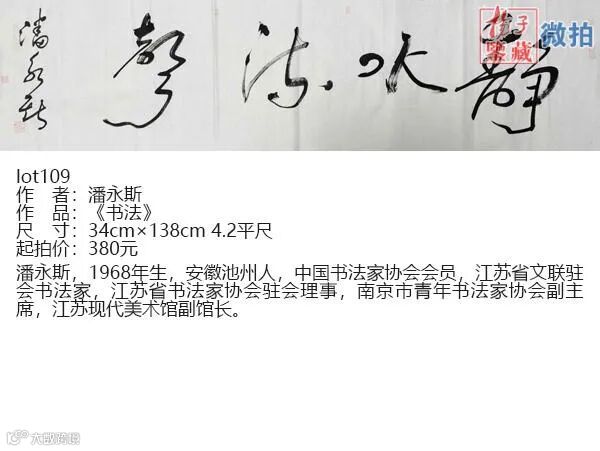 靜 聲
潘永斯
扬子
鑒藏
微拍
lot109
作　者：潘永斯
作　品：《书法》
尺　寸：34cm×138cm 4.2平尺
起拍价：380元
潘永斯，1968年生，安徽池州人，中国书法家协会会员，江苏省文联驻
会书法家，江苏省书法家协会驻会理事，南京市青年书法家协会副主
席，江苏现代美术馆副馆长。
大数跨境